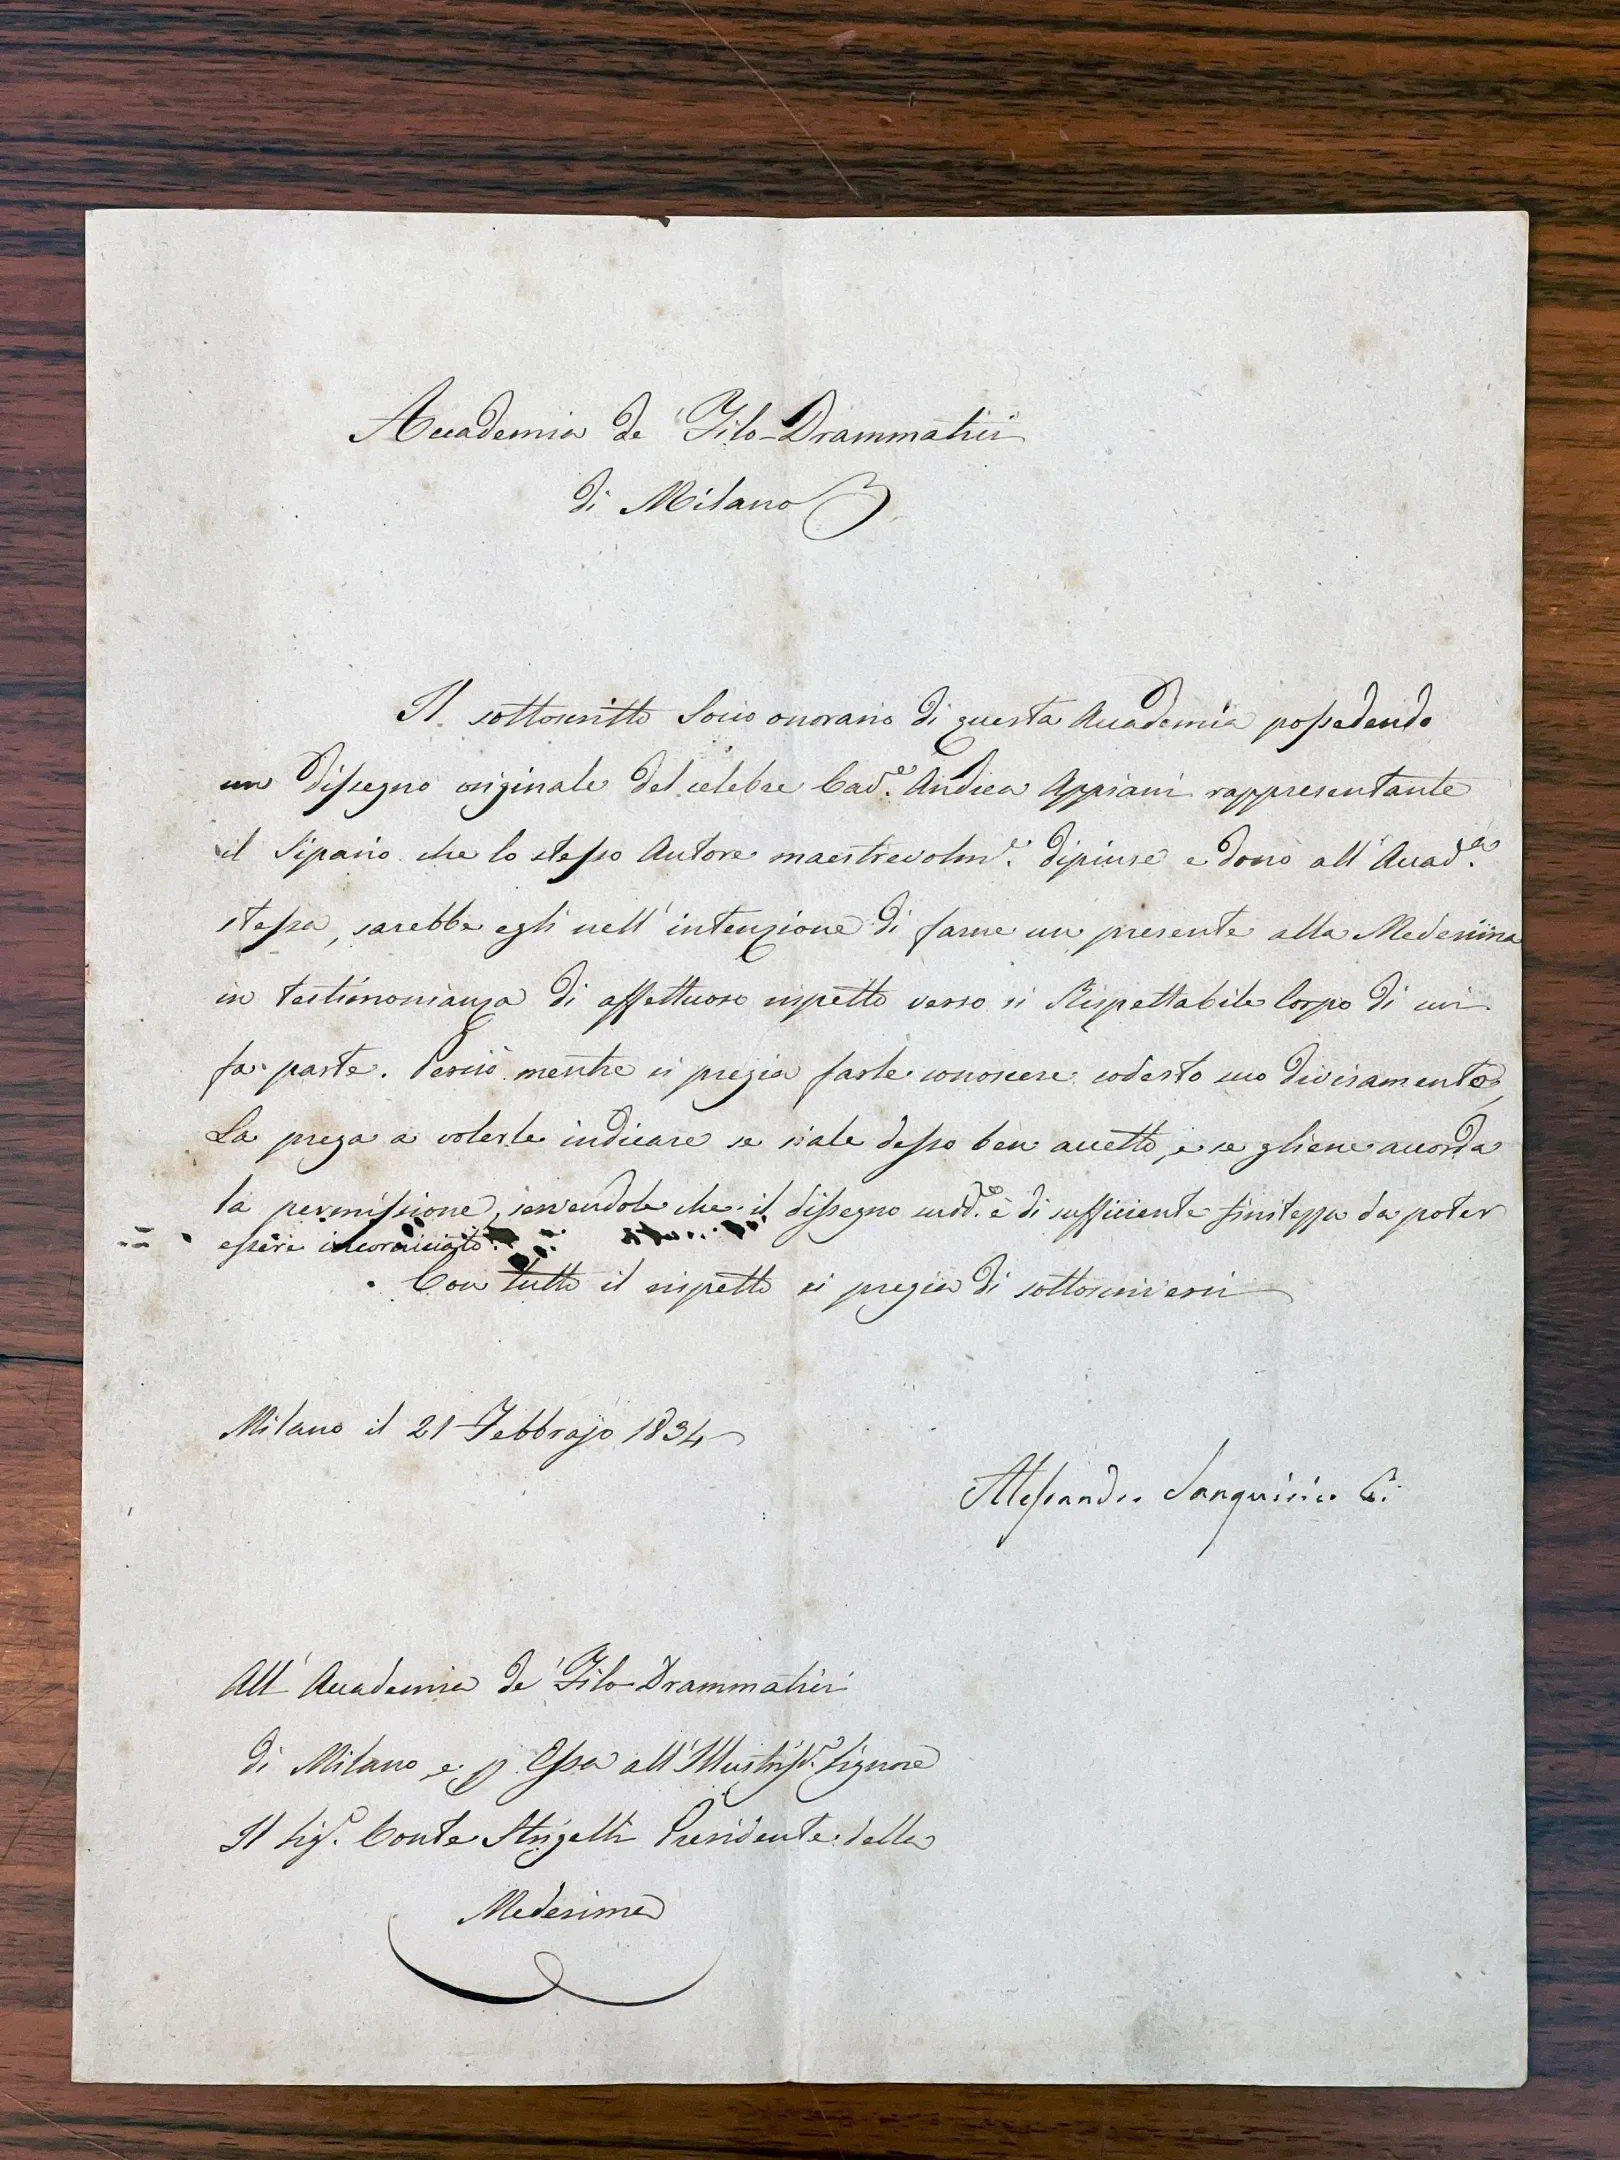 Accademia de' Filo-Drammatici
di Milano
Il sottoscritto Socio onorario di questa Accademia possedendo
un dissegno originale del celebre Cav.e Andrea Appiani rappresentante
il Sipario che lo stesso Autore maestrevolm.e dipinse e donò all'Accad.a
stessa, sarebbe egli nell'intenzione di farne un presente alla Medesima
in testimonianza di affettuoso rispetto verso sì Rispettabile Corpo di cui
fa parte. Perciò mentre si pregia farle conoscere codesto suo divisamento,
La prega a volerle indicare se siale desso ben accetto, e se gliene accorda
la permissione, servendole che il dissegno sudd.o è di sufficiente finitezza da poter
essere incorniciato.
Con tutto il rispetto si pregia di sottoscriversi
Milano il 21 Febbrajo 1834
Alessandro Sanquirico
All'Accademia de' Filo-Drammatici
di Milano e p Essa all'Illustriss.o Signore
Il Sig.r Conte Strigelli Presidente della
Medesima